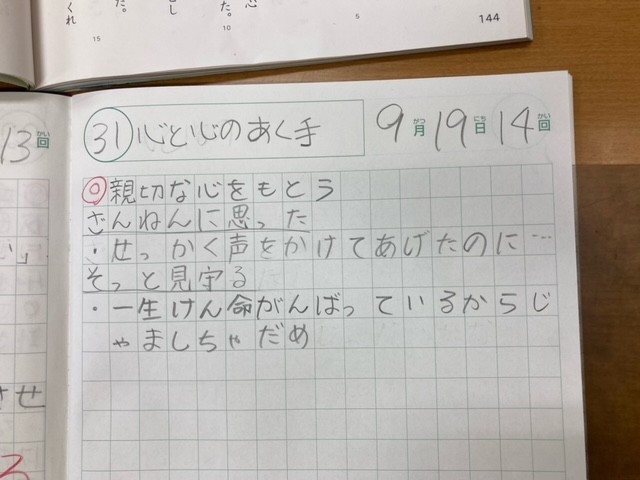 くれ
た。
し
た。
心
15
10
5
144
13回
かい
㉛心と心のあく手
9月19日14回
がつ にち かい
◎親切な心をもとう
ざんねんに思った
・せっかく声をかけてあげたのに…
そっと見守る
・一生けん命がんばっているからじ
ゃましちゃだめ
い」
させ
ろ